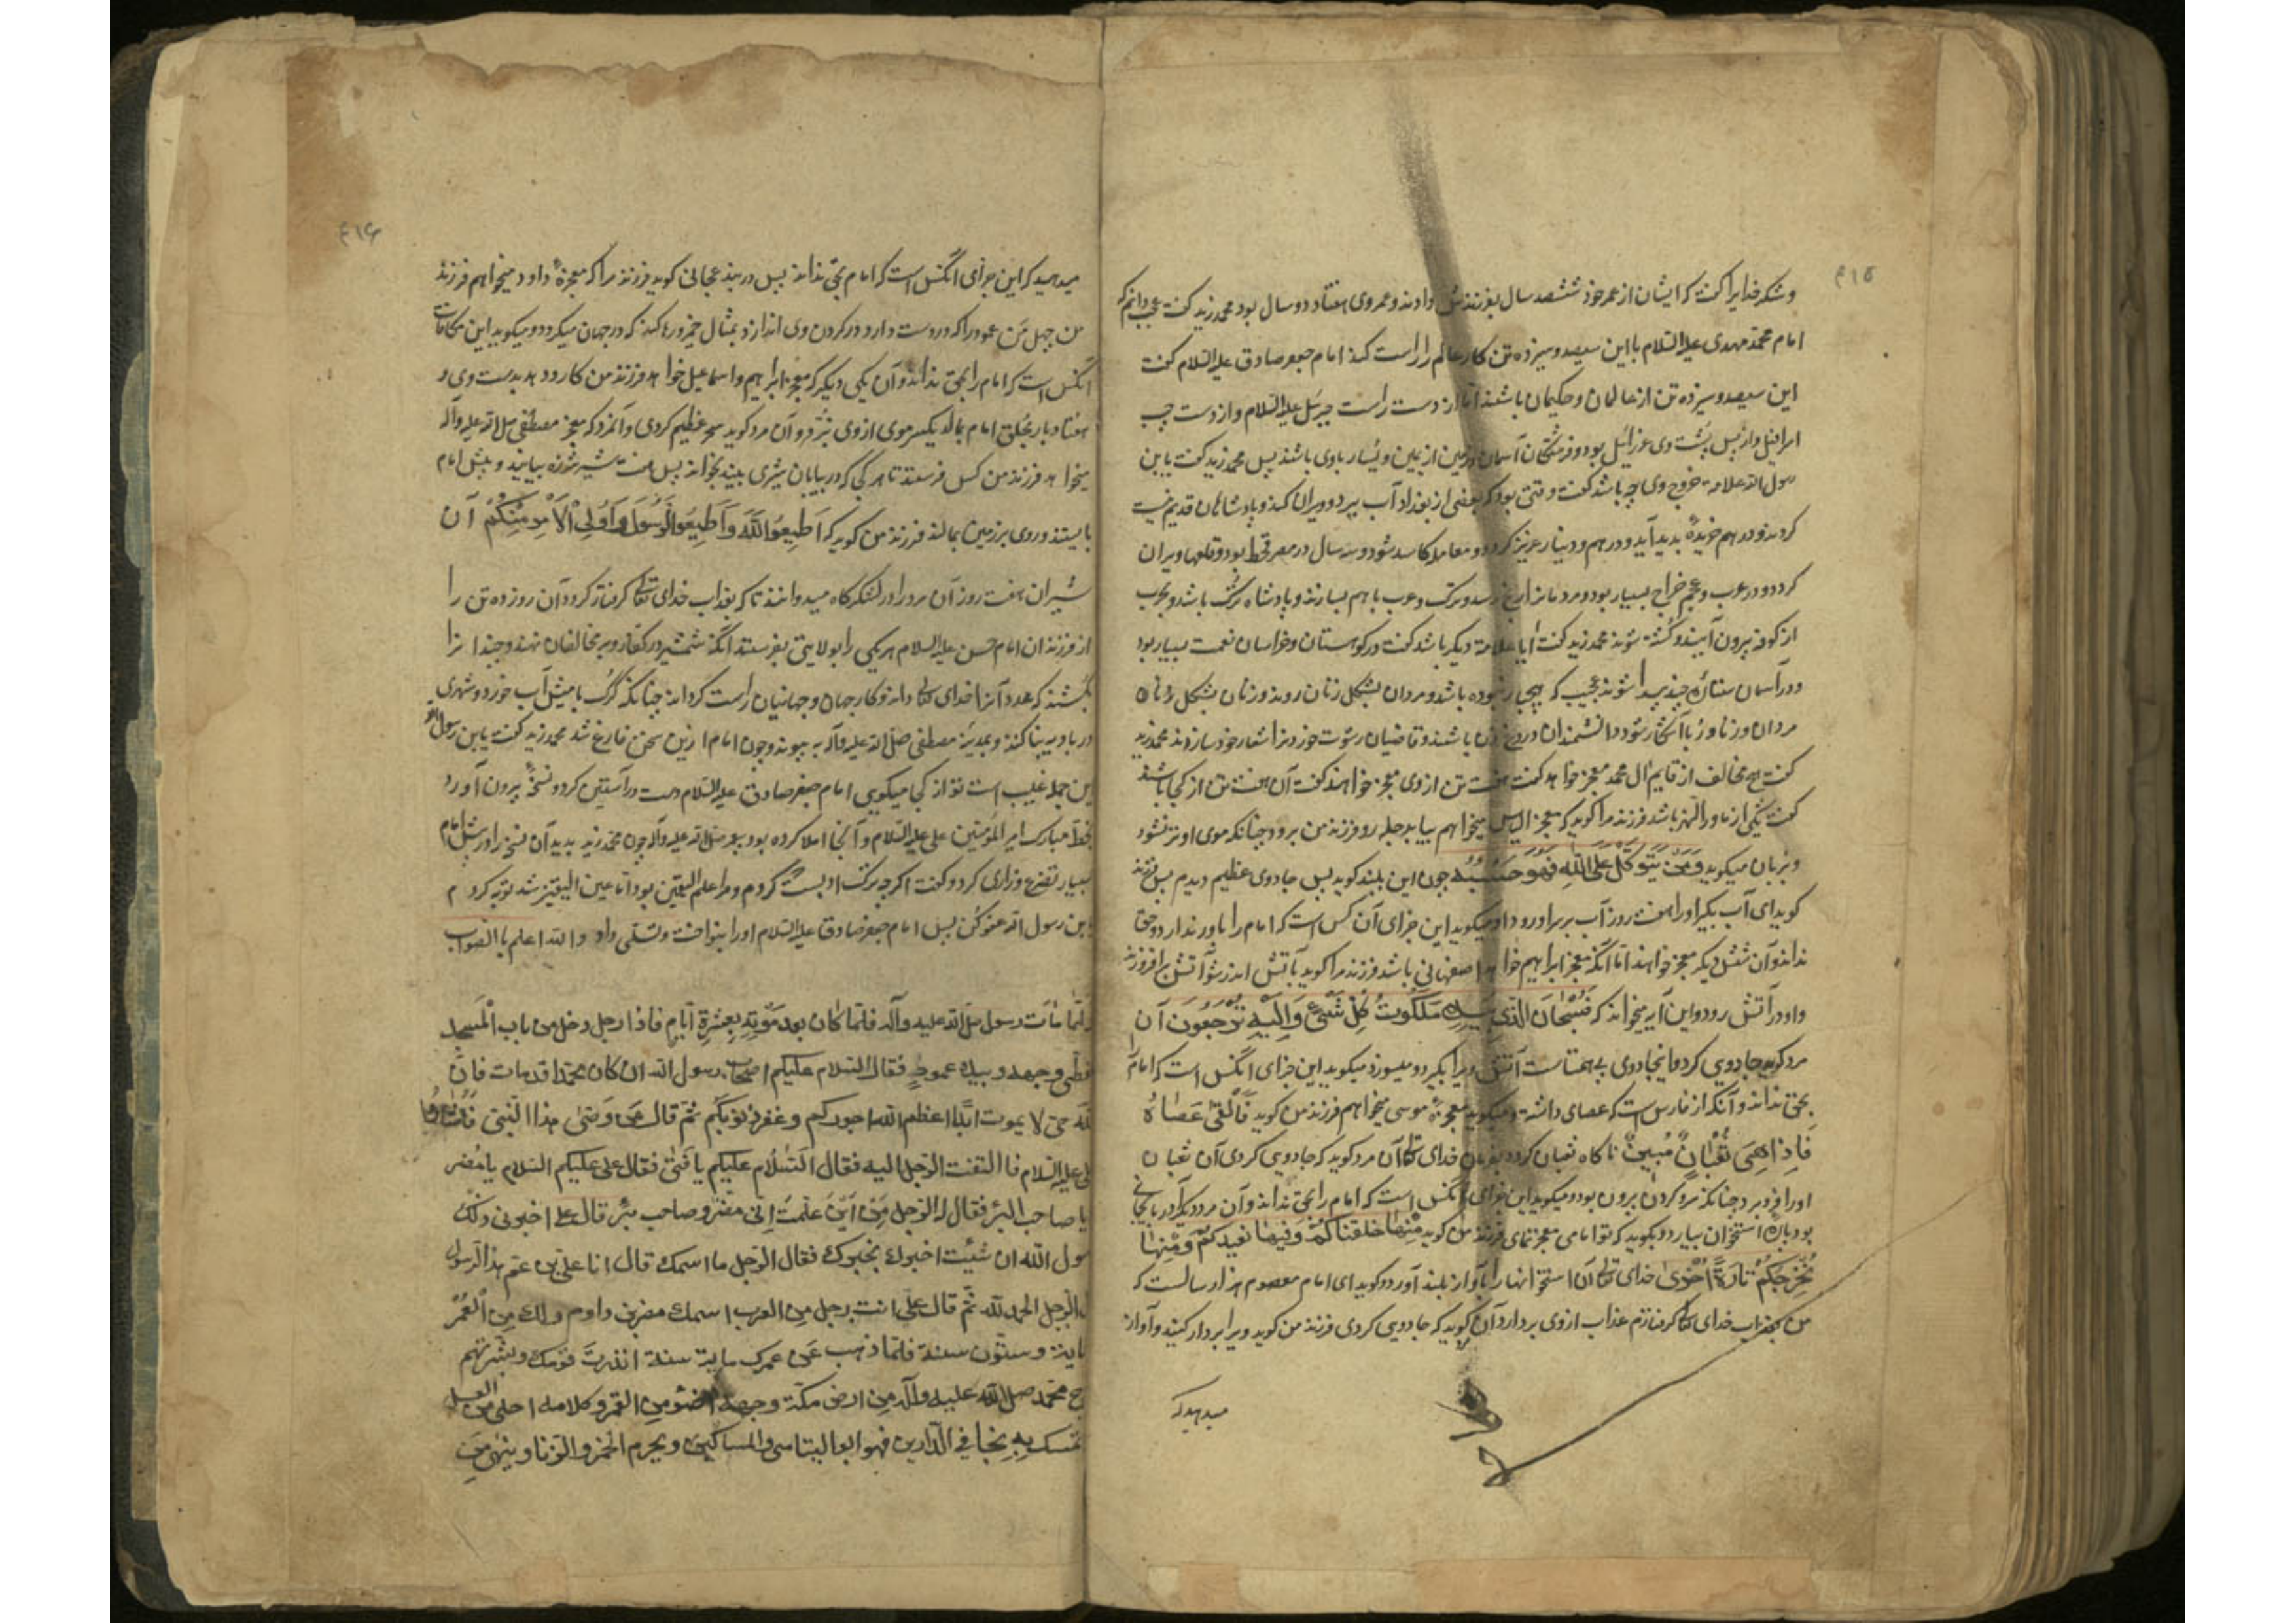 ۴۱۵
و شکر خدایرا گفت که ایشان از عمر خود ششصد سال بفرزندش دادند و عمر وی هفتاد و دو سال بود محمد زید گفت عجب دانم که
امام محمد مهدی علیه السلام با این سیصد و سیزده تن کار عالم را راست کند امام جعفر صادق علیه السلام گفت
این سیصد و سیزده تن از عالمان و حکیمان باشند اما از دست راست جبرئیل علیه السلام و از دست چپ
اسرافیل و از پس پشت وی عزرائیل بود و فرشتگان آسمان و زمین از یمین و یسار با وی باشند پس محمد زید گفت یا بن
رسول الله علامة خروج وی چه باشد گفت وقتی بود که بعضی از بغداد آب ببرد و ویران کند و پادشاهان قدیم نیست
کردند و درهم خزیده بدید آید و درهم و دینار عزیز گردد و معامله کاسد شود و سه سال در مصر قحط بود و قلعها ویران
گردد و در عرب و عجم خراج بسیار بود و مردمانرا رنج رسد و ترک و عرب با هم بسازند و پادشاه ترک باشد و عرب
از کوفه بیرون آیند و کشته شوند محمد زید گفت ایا علامة دیگر باشد گفت در کوهستان و خراسان نعمت بسیار بود
و در آسمان ستاره چند پیدا شوند عجیب که هیچبار نبوده باشد و مردان بشکل زنان روند و زنان بشکل
مردان و زنا و ربا آشکار شود و دانشمندان دروغ زن باشند و قاضیان رشوت خورند اشعار خود سازند محمد زید
گفت هیچ مخالف از قایم ال محمد معجز خواهد گفت هفت تن از وی معجز خواهند گفت آن هفت تن از کجا باشند
گفت یکی از ماوراالنهر باشد فرزند مرا گوید که معجز الیاس میخواهم بیاید بدجله رو فرزند من برود چنانکه موی او تر نشود
و بزبان میگوید وَمَنْ یَتَوَکَّلْ عَلَی اللهِ فَهُوَ حَسْبُه چون این بلند گوید پس جادوی عظیم دیدم پس فرزند
گوید ای آب بگیر او را هفت روز آب بر سر او رود و او میگوید این جزای آن کس است که امام را باور ندارد و حق
نداند و آن شش دیگر معجز خواهند اما آنکه معجز ابراهیم خواهد اصفهانی باشد فرزند مرا گوید بآتش اندر شو آتش برافروزند
و او در آتش رود و این آیه میخواند که فَسُبْحَانَ الَّذِی بِیَدِهِ مَلَکُوتُ کُلِّ شَیْءٍ وَاِلَیْهِ تُرْجَعُونَ آن
مرد گوید جادویی کرد و اینجادوی به همتاست آتش ویرا بگیرد و میسوزد میگوید این جزای آنکس است که امام را
بحق نداند و آنکه از فارس است که عصای داشته و میگوید معجزهٔ موسی میخواهم فرزند من گوید فَاَلْقٰی عَصَاهُ
فَاِذَا هِیَ ثُعْبَانٌ مُبِینٌ ناگاه ثعبان گردد بفرمان خدای تعالی آن مرد گوید که جادویی کردی آن ثعبان
او را فرو برد چنانکه سر و گردن برون بود و میگوید این جزای آنکس است که امام را بحق نداند و آن مرد دیگر
بود پاره استخوان بیارد و بگوید که تو امامی معجز نمای فرزند من گوید مِنْهَا خَلَقْنَاکُمْ وَفِیهَا نُعِیدُکُمْ وَمِنْهَا
نُخْرِجُکُمْ تَارَةً اُخْرٰی خدای تعالی آن استخوانها را بآواز بلند آورد و گوید ای امام معصوم هزار سالست که
من بعذاب خدای تعالی گرفتارم عذاب ازوی بردارد آن گوید که جادویی کردی فرزند من گوید ویرا بردار کنید و آواز
میدهید که
۴۱۶
میدهید که این جزای آنکس است که امام بحق نداند پس در بند عجانی گوید فرزند مرا که معجزهٔ داود میخواهم فرزند
من چهل من عمود را که در دست دارد در گردن وی اندازد بمثال خمیر و رها کند که در جهان میگردد و میگوید این مکافات
آنکس است که امام را بحق نداند و آن یکی دیگر که معجزه ابراهیم و اسماعیل خواهد فرزند من کارد دهد بدست وی و
هفتاد بار بحلق امام بمالد یکسر موی از وی نبرد و آن مرد گوید سحر عظیم کردی و آنمرد که معجز مصطفی صلی الله علیه وآله
میخواهد فرزند من کس فرستد تا هر کجا که در بیابان شیری بیند بخواند پس هفت شیر شرزه بیایند و پیش امام
بایستند و روی بر زمین بمالند فرزند من گوید که اَطِیعُوا اللهَ وَاَطِیعُوا الرَّسُولَ وَاُولِی الْاَمْرِ مِنْکُمْ آن
شیران هفت روز آن مرد را در لشکرگاه میدوانند تا که بعذاب خدای تعالی گرفتار گردد آن روز ده تن را
از فرزندان امام حسن علیه السلام هر یکی را بولایتی بفرستد آنگه شمشیر در کفار و بر مخالفان نهند و چندانرا
بکشند که عدد آنرا خدای تعالی داند و کار جهان و جهانیان راست گرداند چنانکه گرگ با میش آب خورد و شهری
در بادیه بنا کند و بمدینهٔ مصطفی صلی الله علیه وآله به پیوند و چون امام ازین سخن فارغ شد محمد زید گفت یا بن رسول الله
این جمله غیب است تو از کجا میگویی امام جعفر صادق علیه السلام دست در آستین کرد و نسخهٔ بیرون آورد
بخط مبارک امیر المؤمنین علی علیه السلام و آنجا املا کرده بود پیغمبر صلی الله علیه وآله چون محمد زید بدید آن نسخه را در پیش امام
بسیار تضرع و زاری کرد و گفت اگرچه ترک ادب کردم و مرا علم الیقین بود اما عین الیقین شد توبه کردم
یا بن رسول الله عفو کن پس امام جعفر صادق علیه السلام او را بنواخت و تسلی داد والله اعلم بالصواب
ولَمّا مَاتَ رسول صلی الله علیه وآله فلمّا کان بعد مَوْتِهِ بِعَشَرَةِ اَیّامٍ فاذا رجل دخل من باب المسجد
مغطّی وجهه و بیده عمود فقال السلام علیکم اصحاب رسول الله ان کان محمّدا قدمات فانّ
الله حیّ لا یموت ابدًا اعظم الله اجورکم وغفر ذنوبکم ثمّ قال مَن وَصیّ هذا النّبیّ فاشاروا
علی علیه السلام فالتفت الرّجل الیه فقال السّلام علیکم یا فَتیٰ فقال علی علیکم السّلام یا مضر
یا صاحب البئر فقال له الرّجل مِن اَیْنَ عَلِمْتَ اِنّی مضر و صاحب بئر قال علی اخبرنی ذلک
رسول الله ان شئت اخبرک بخبرک فقال الرّجل ما اسمک قال انا علی بن عمّ هذا الرّسول
الرّجل الحمد لله ثمّ قال علی انت رجل من العرب اسمک مضر بن دارم ولک مِن العُمُر
مایة وستّون سنة فلمّا ذهب عَن عمرک مایة سنة انذرت قومک وبشّرتهم
محمّد صلی الله علیه وآله مِن ارض مکّة وجهه اضوء من القمر و کلامه احلی من العسل
تمسک بِهِ نجا فی الدّارین فهو ابو الیتامی والمساکین ویحرم الخمر والزنا وینهی من